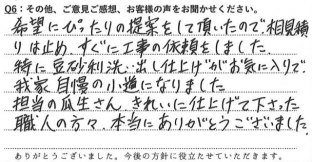 Q6:その他、ご意見ご感想、お客様の声をお聞かせください。
希望にぴったりの提案をして頂いたので相見積
りは止め、すぐに工事の依頼をしました。
特に豆砂利洗い出し仕上げがお気に入りで
我家自慢の小道になりました。
担当の瓜生さん、きれいに仕上げて下さった
職人の方々、本当にありがとうございました。
ありがとうございました。今後の方針に役立たせていただきます。